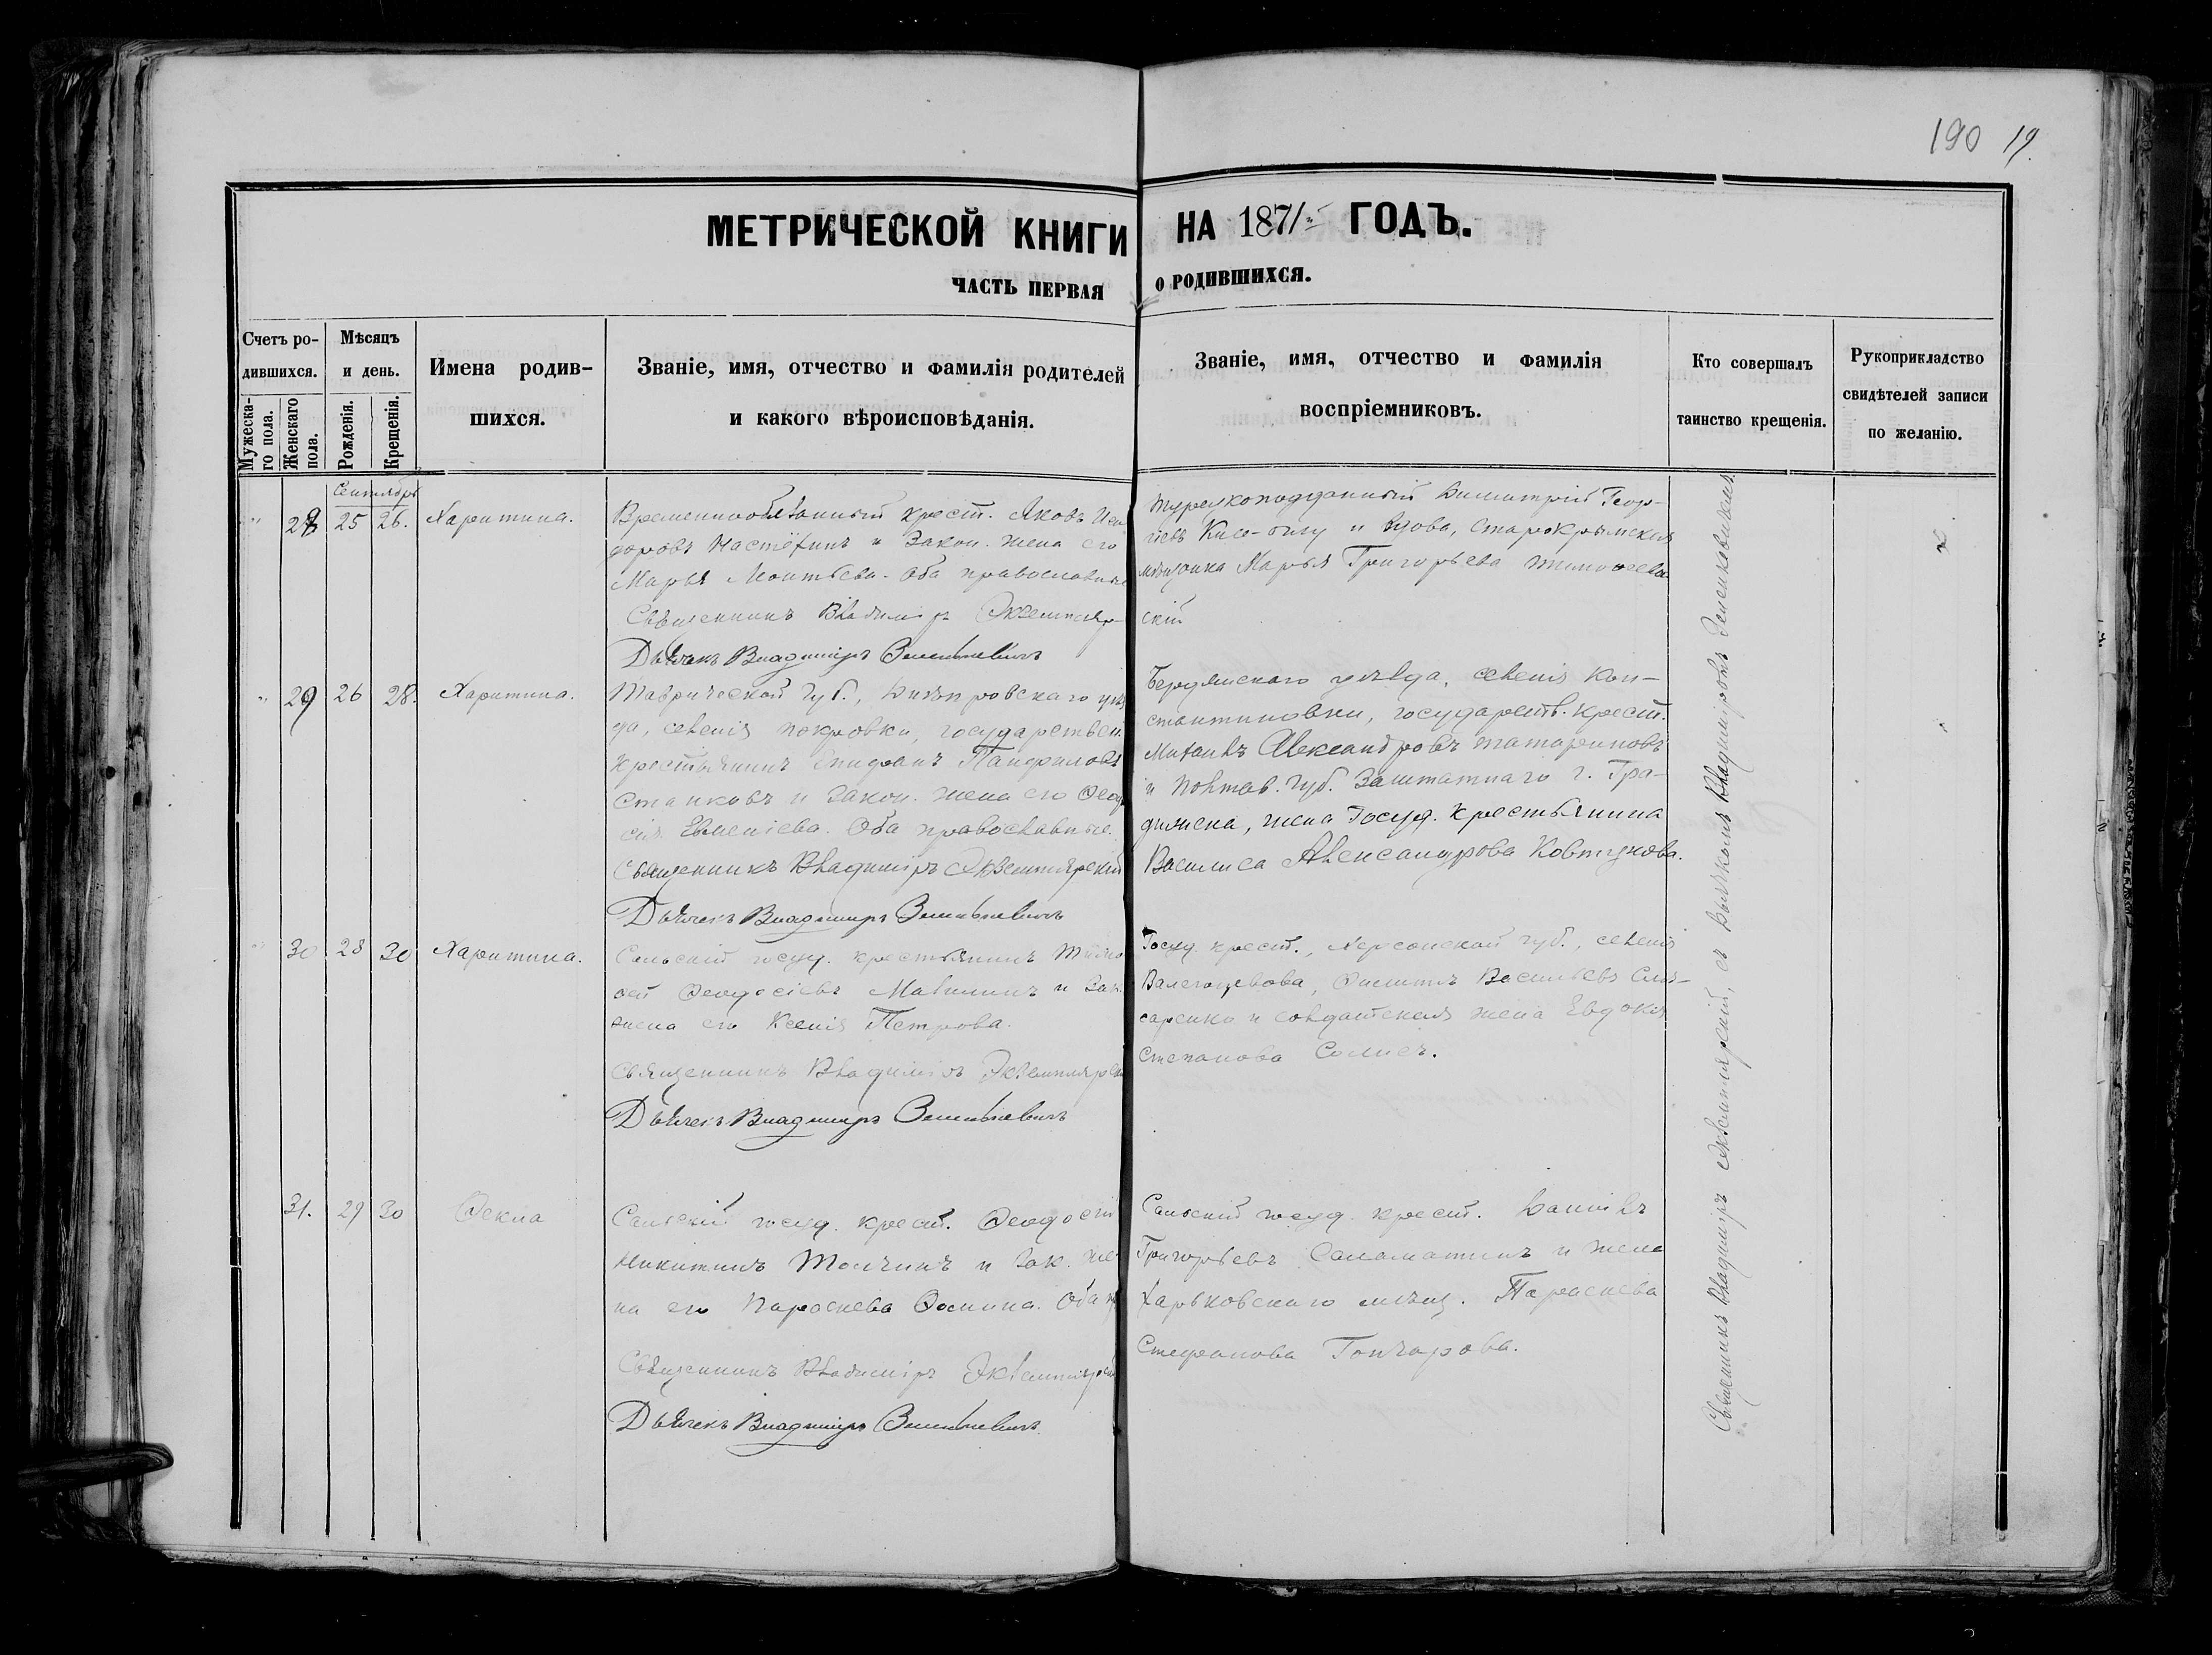 190 19.
МЕТРИЧЕСКОЙ КНИГИ НА 1871й ГОДЪ.
ЧАСТЬ ПЕРВАЯ О РОДИВШИХСЯ.
Счетъ ро-
дившихся.
Мужеска-
го пола.
Женскаго
пола.
Мѣсяцъ
и день.
Рожденія.
Крещенія.
Имена родив-
шихся.
Званіе, имя, отчество и фамилія родителей
и какого вѣроисповѣданія.
Званіе, имя, отчество и фамилія
воспріемниковъ.
Кто совершалъ
таинство крещенія.
Рукоприкладство
свидѣтелей записи
по желанію.
Сентябрь
28 25 26. Харитина.
Временнообязанный крест. Яковъ Иси-
доровъ и закон. жена его
Марья Леонтьева. Оба православные
Священникъ Владиміръ Экземплярскій
Дьячекъ Владиміръ
Турецкоподданный Димитрій Геор-
гіевъ и вдова, Старокрымская
мѣщанка Марья Григорьева
29 26 28. Харитина.
Таврической губ., Днѣпровскаго уѣз
да, селенія Покровки, государствен.
крестьянинъ Епифанъ Панфиловъ
Станковъ и закон. жена его Ѳеодо
сія Евменіева. Оба православные.
Священникъ Владиміръ Экземплярскій
Дьячекъ Владиміръ
Бердянскаго уѣзда, селенія Кон-
стантиновки, государств. крест.
Михаилъ Александровъ Татариновъ
и Полтав. губ. заштатнаго г. Гра-
дижска, жена госуд. крестьянина
Василиса Александрова Ковтунова.
30 28 30 Харитина.
Сальскій госуд. крестьянинъ Тимо
ѳей Ѳеодосіевъ и зак.
жена его Ксенія Петрова.
Священникъ Владиміръ Экземплярскій
Дьячекъ Владиміръ
Госуд. крест., Херсонской губ., селенія
Валегоцулова, Филиппъ Васильевъ Слю-
саренко и солдатская жена Евдокія
Степанова
31. 29 30 Ѳекла
Сальскій госуд. крест. Ѳеодосій
Никитинъ и зак. же
на его Параскева Ѳомина. Оба пр
Священникъ Владиміръ Экземплярскій
Дьячекъ Владиміръ
Сальскій госуд. крест. Даніилъ
Григорьевъ Саламатинъ и жена
Харьковскаго мѣщ. Параскева
Стефанова Гончарова.
Священникъ Владиміръ Экземплярскій, съ дьячкомъ Владиміромъ